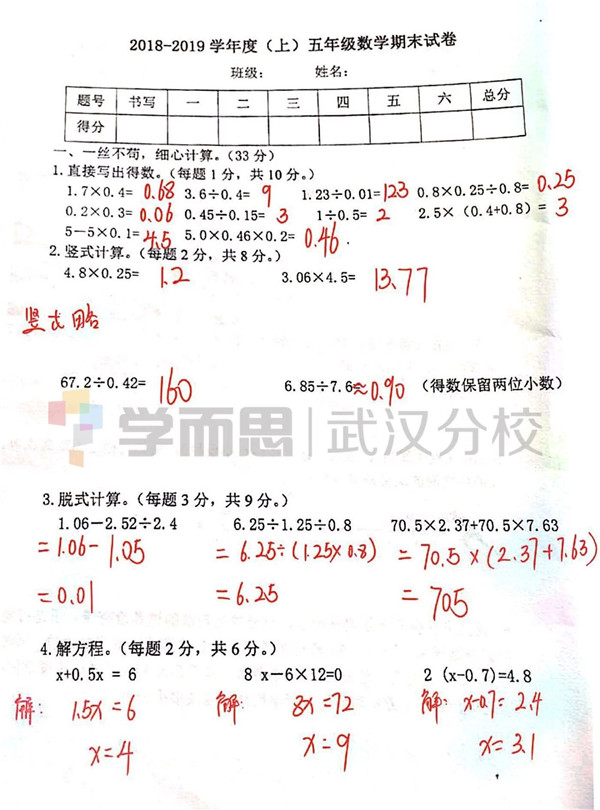 2018-2019学年度（上）五年级数学期末试卷
班级： 姓名：
题号 书写 一 二 三 四 五 六 总分
得分
一、一丝不苟，细心计算。（33分）
1.直接写出得数。（每题1分，共10分。）
1.7×0.4= 0.68 3.6÷0.4= 9 1.23÷0.01= 123 0.8×0.25÷0.8= 0.25
0.2×0.3= 0.06 0.45÷0.15= 3 1÷0.5= 2 2.5×（0.4+0.8）= 3
5-5×0.1= 4.5 5.0×0.46×0.2= 0.46
2.竖式计算。（每题2分，共8分。）
4.8×0.25= 1.2 3.06×4.5= 13.77
竖式略
67.2÷0.42= 160 6.85÷7.6≈0.90 （得数保留两位小数）
学而思|武汉分校
3.脱式计算。（每题3分，共9分。）
1.06-2.52÷2.4 6.25÷1.25÷0.8 70.5×2.37+70.5×7.63
=1.06-1.05 =6.25÷(1.25×0.8) =70.5×(2.37+7.63)
=0.01 =6.25 =705
4.解方程。（每题2分，共6分。）
x+0.5x = 6 8 x-6×12=0 2 (x-0.7)=4.8
解：1.5x=6 解：8x=72 解：x-0.7=2.4
x=4 x=9 x=3.1